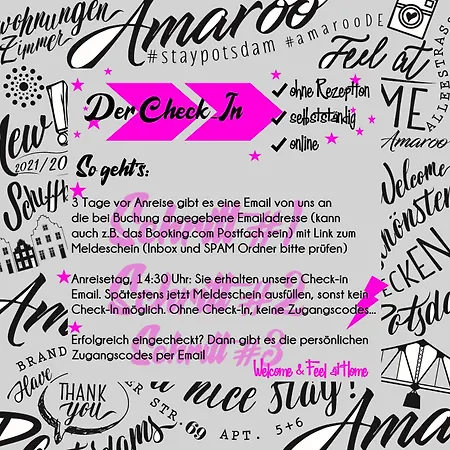 wohnungen
Zimmer
Amaroo
#staypotsdam #amarooDE
Feel at
ME
ALLEESTRAS
Amaroo
New!
2021/20
Der Check_In
✓ ohne Rezeption
✓ selbstständig
✓ online
So geht's:
Welcome
Schritt #1
3 Tage vor Anreise gibt es eine Email von uns an
die bei Buchung angegebene Emailadresse (kann
auch z.B. das Booking.com Postfach sein) mit Link zum
Meldeschein (Inbox und SPAM Ordner bitte prüfen)
Anreisetag, 14:30 Uhr: Sie erhalten unsere Check-in
Email. Spätestens jetzt Meldeschein ausfüllen, sonst kein
Check-In möglich. Ohne Check-In, keine Zugangscodes...
Schritt #3
Erfolgreich eingecheckt? Dann gibt es die persönlichen
Zugangscodes per Email
Welcome & Feel atHome
BRAND
Have
a nice stay!
THANK
you
STR.69 APT. 5+6
Amaroo